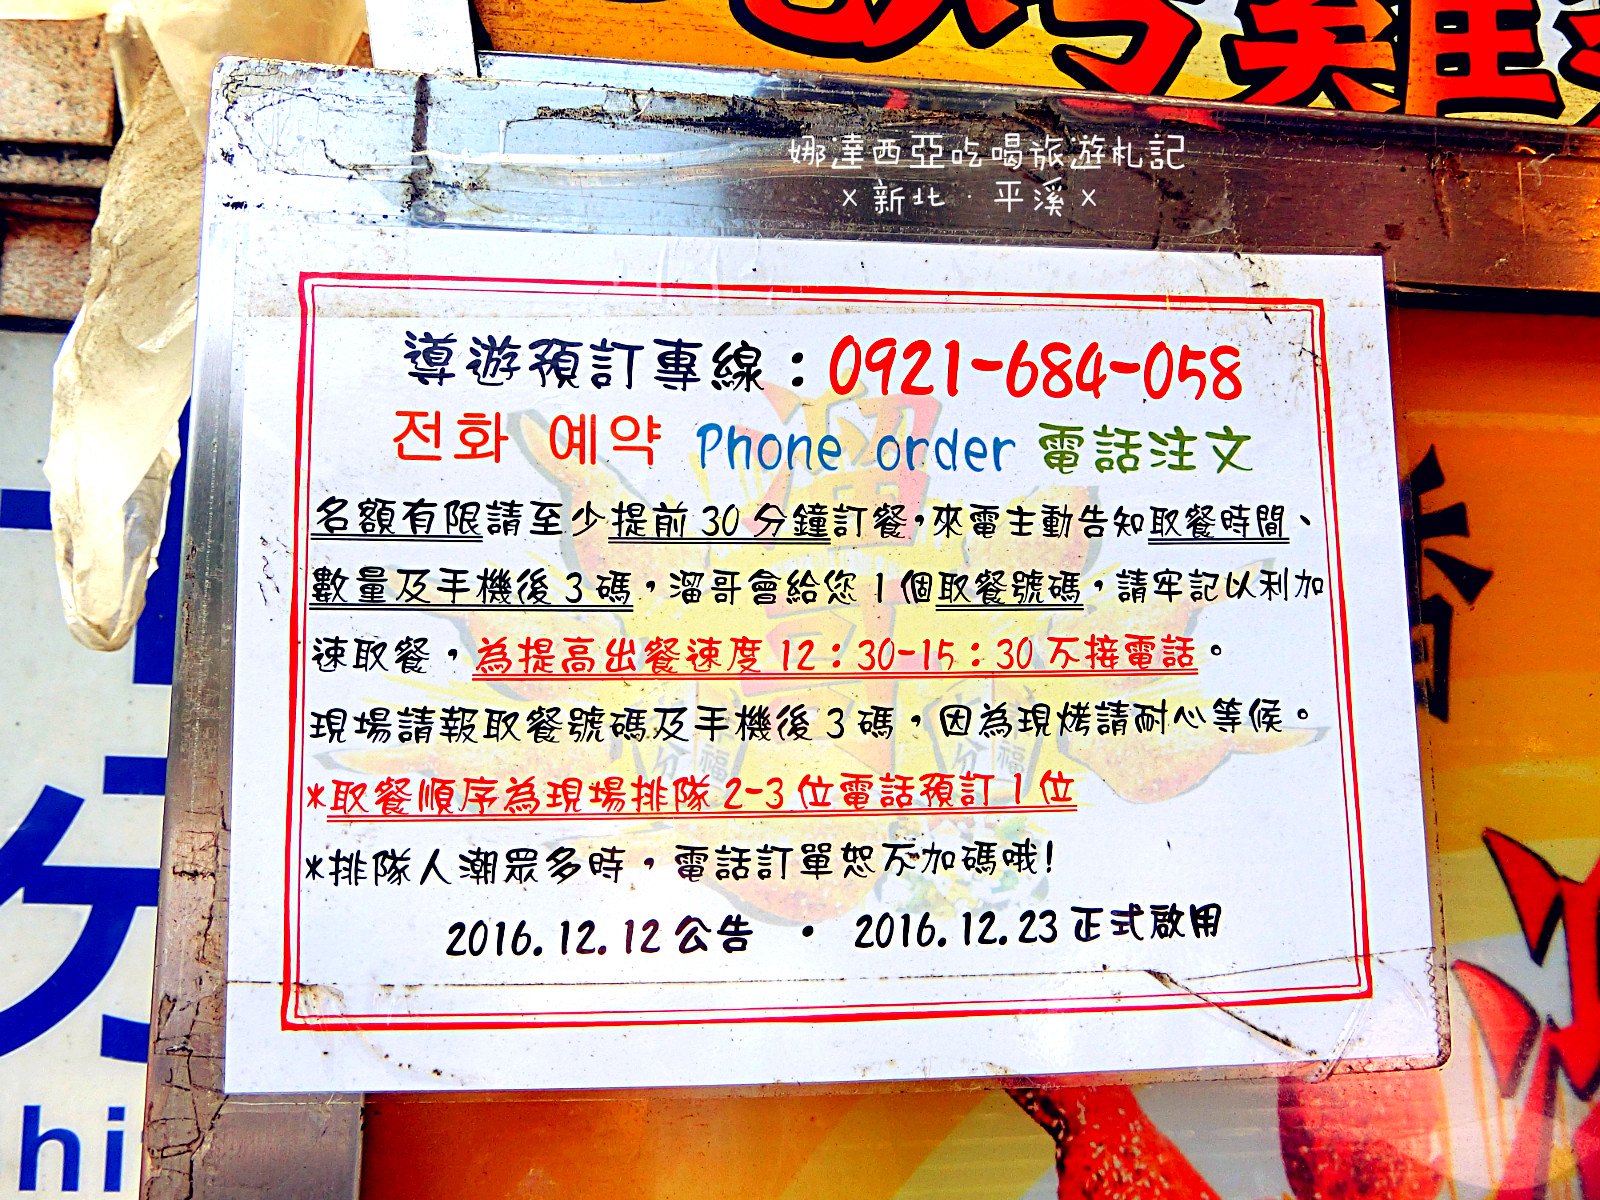 雞
娜達西亞吃喝旅遊札記
x 新北 · 平溪 x
導遊預訂專線：0921-684-058
전화 예약 Phone order 電話注文
名額有限請至少提前 30 分鐘訂餐，來電主動告知取餐時間、
數量及手機後 3 碼，溜哥會給您 1 個取餐號碼，請牢記以利加
速取餐，為提高出餐速度 12：30-15：30 不接電話。
現場請報取餐號碼及手機後 3 碼，因為現烤請耐心等候。
*取餐順序為現場排隊 2-3 位電話預訂 1 位
*排隊人潮眾多時，電話訂單恕不加碼哦!
2016.12.12 公告 · 2016.12.23 正式啟用
hi